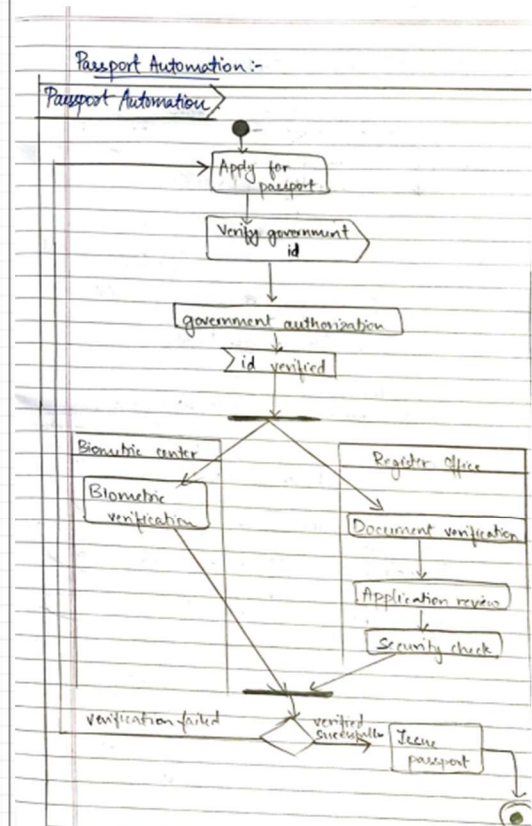 Passport Automation:-
Passport Automation
Apply for
passport
Verify government
id
government authorization
id verified
Biometric center
Register Office
Biometric
verification
Document verification
Application review
Security check
verification failed
verified
successfully
Issue
passport